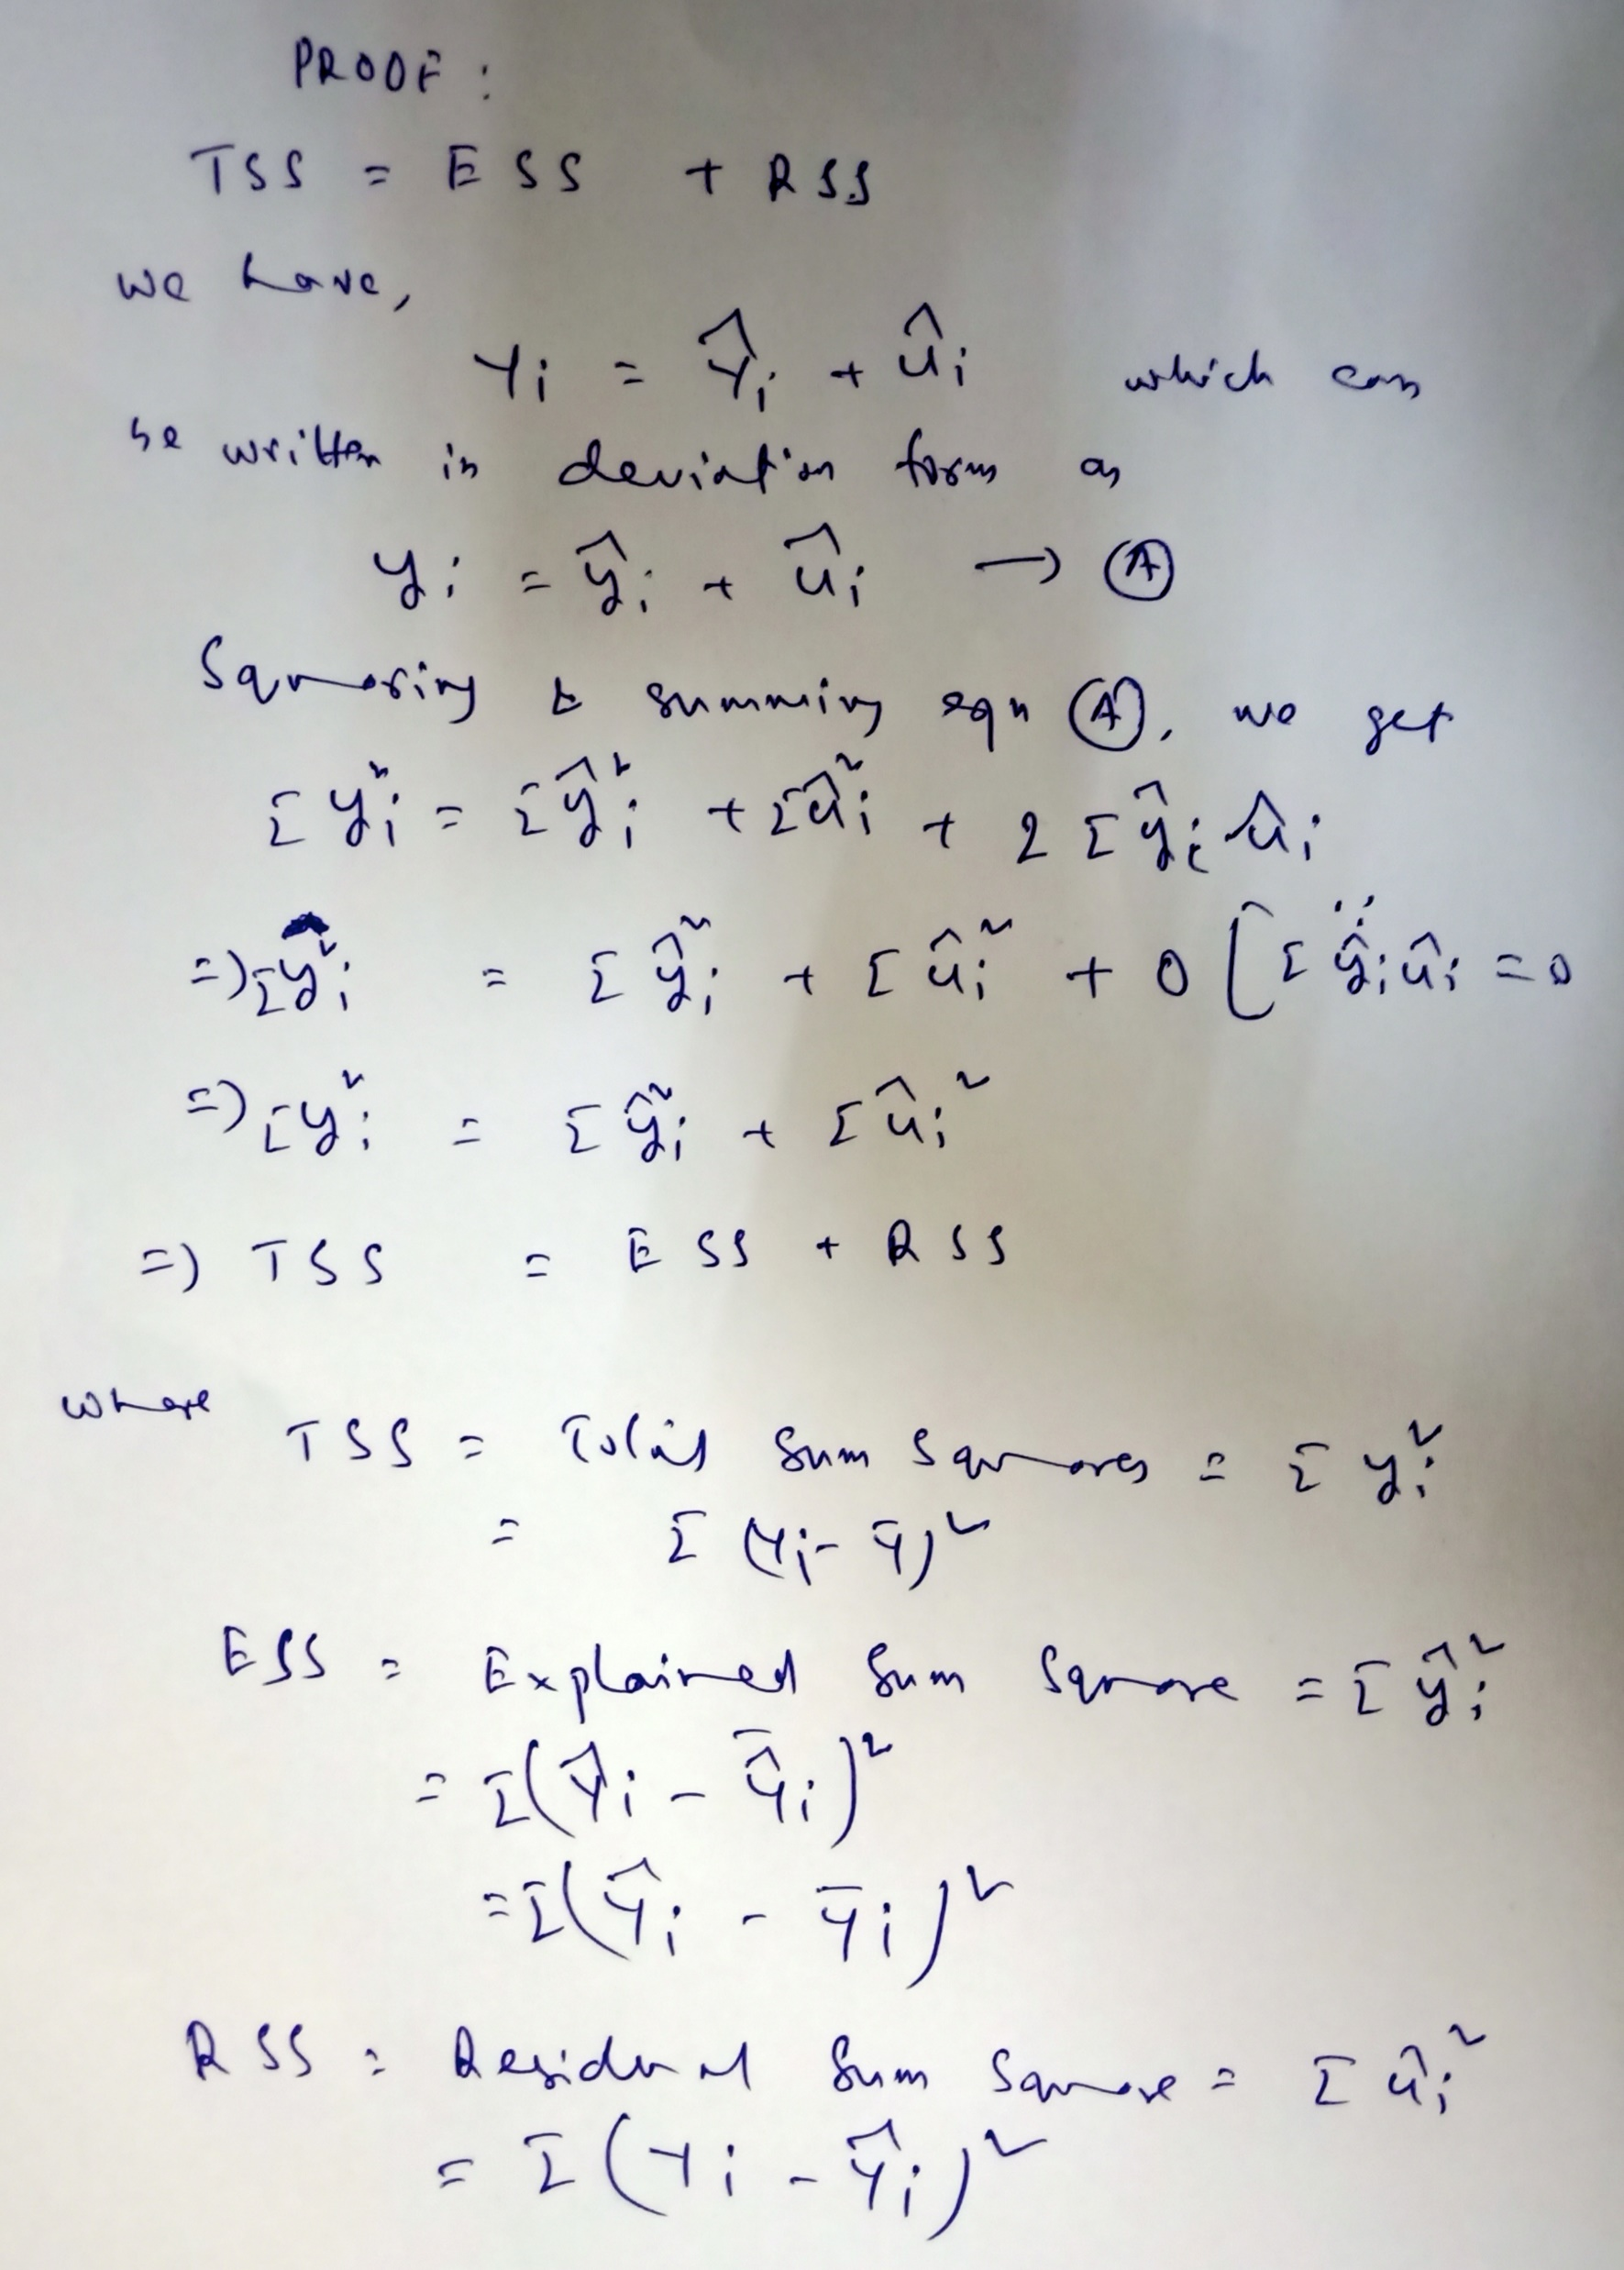 PROOF :
TSS = ESS + RSS
we have,
Yi = Ŷi + ûi which can
be written in deviation form as
yi = ŷi + ûi → Ⓐ
Squaring & summing eqn Ⓐ, we get
Σyi² = Σŷi² + Σûi² + 2Σŷiûi
=> Σyi² = Σŷi² + Σûi² + 0 [∵ Σŷiûi = 0
=> Σyi² = Σŷi² + Σûi²
=> TSS = ESS + RSS
where
TSS = Total Sum Squares = Σyi²
= Σ(Yi - Ȳ)²
ESS = Explained Sum Square = Σŷi²
= Σ(Ŷi - Ŷ̄i)²
= Σ(Ŷi - Ȳi)²
RSS = Residual Sum Square = Σûi²
= Σ(Yi - Ŷi)²